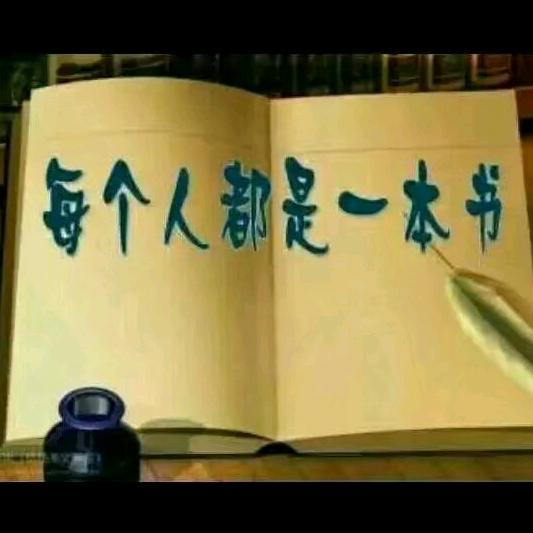 每个人都是一本书